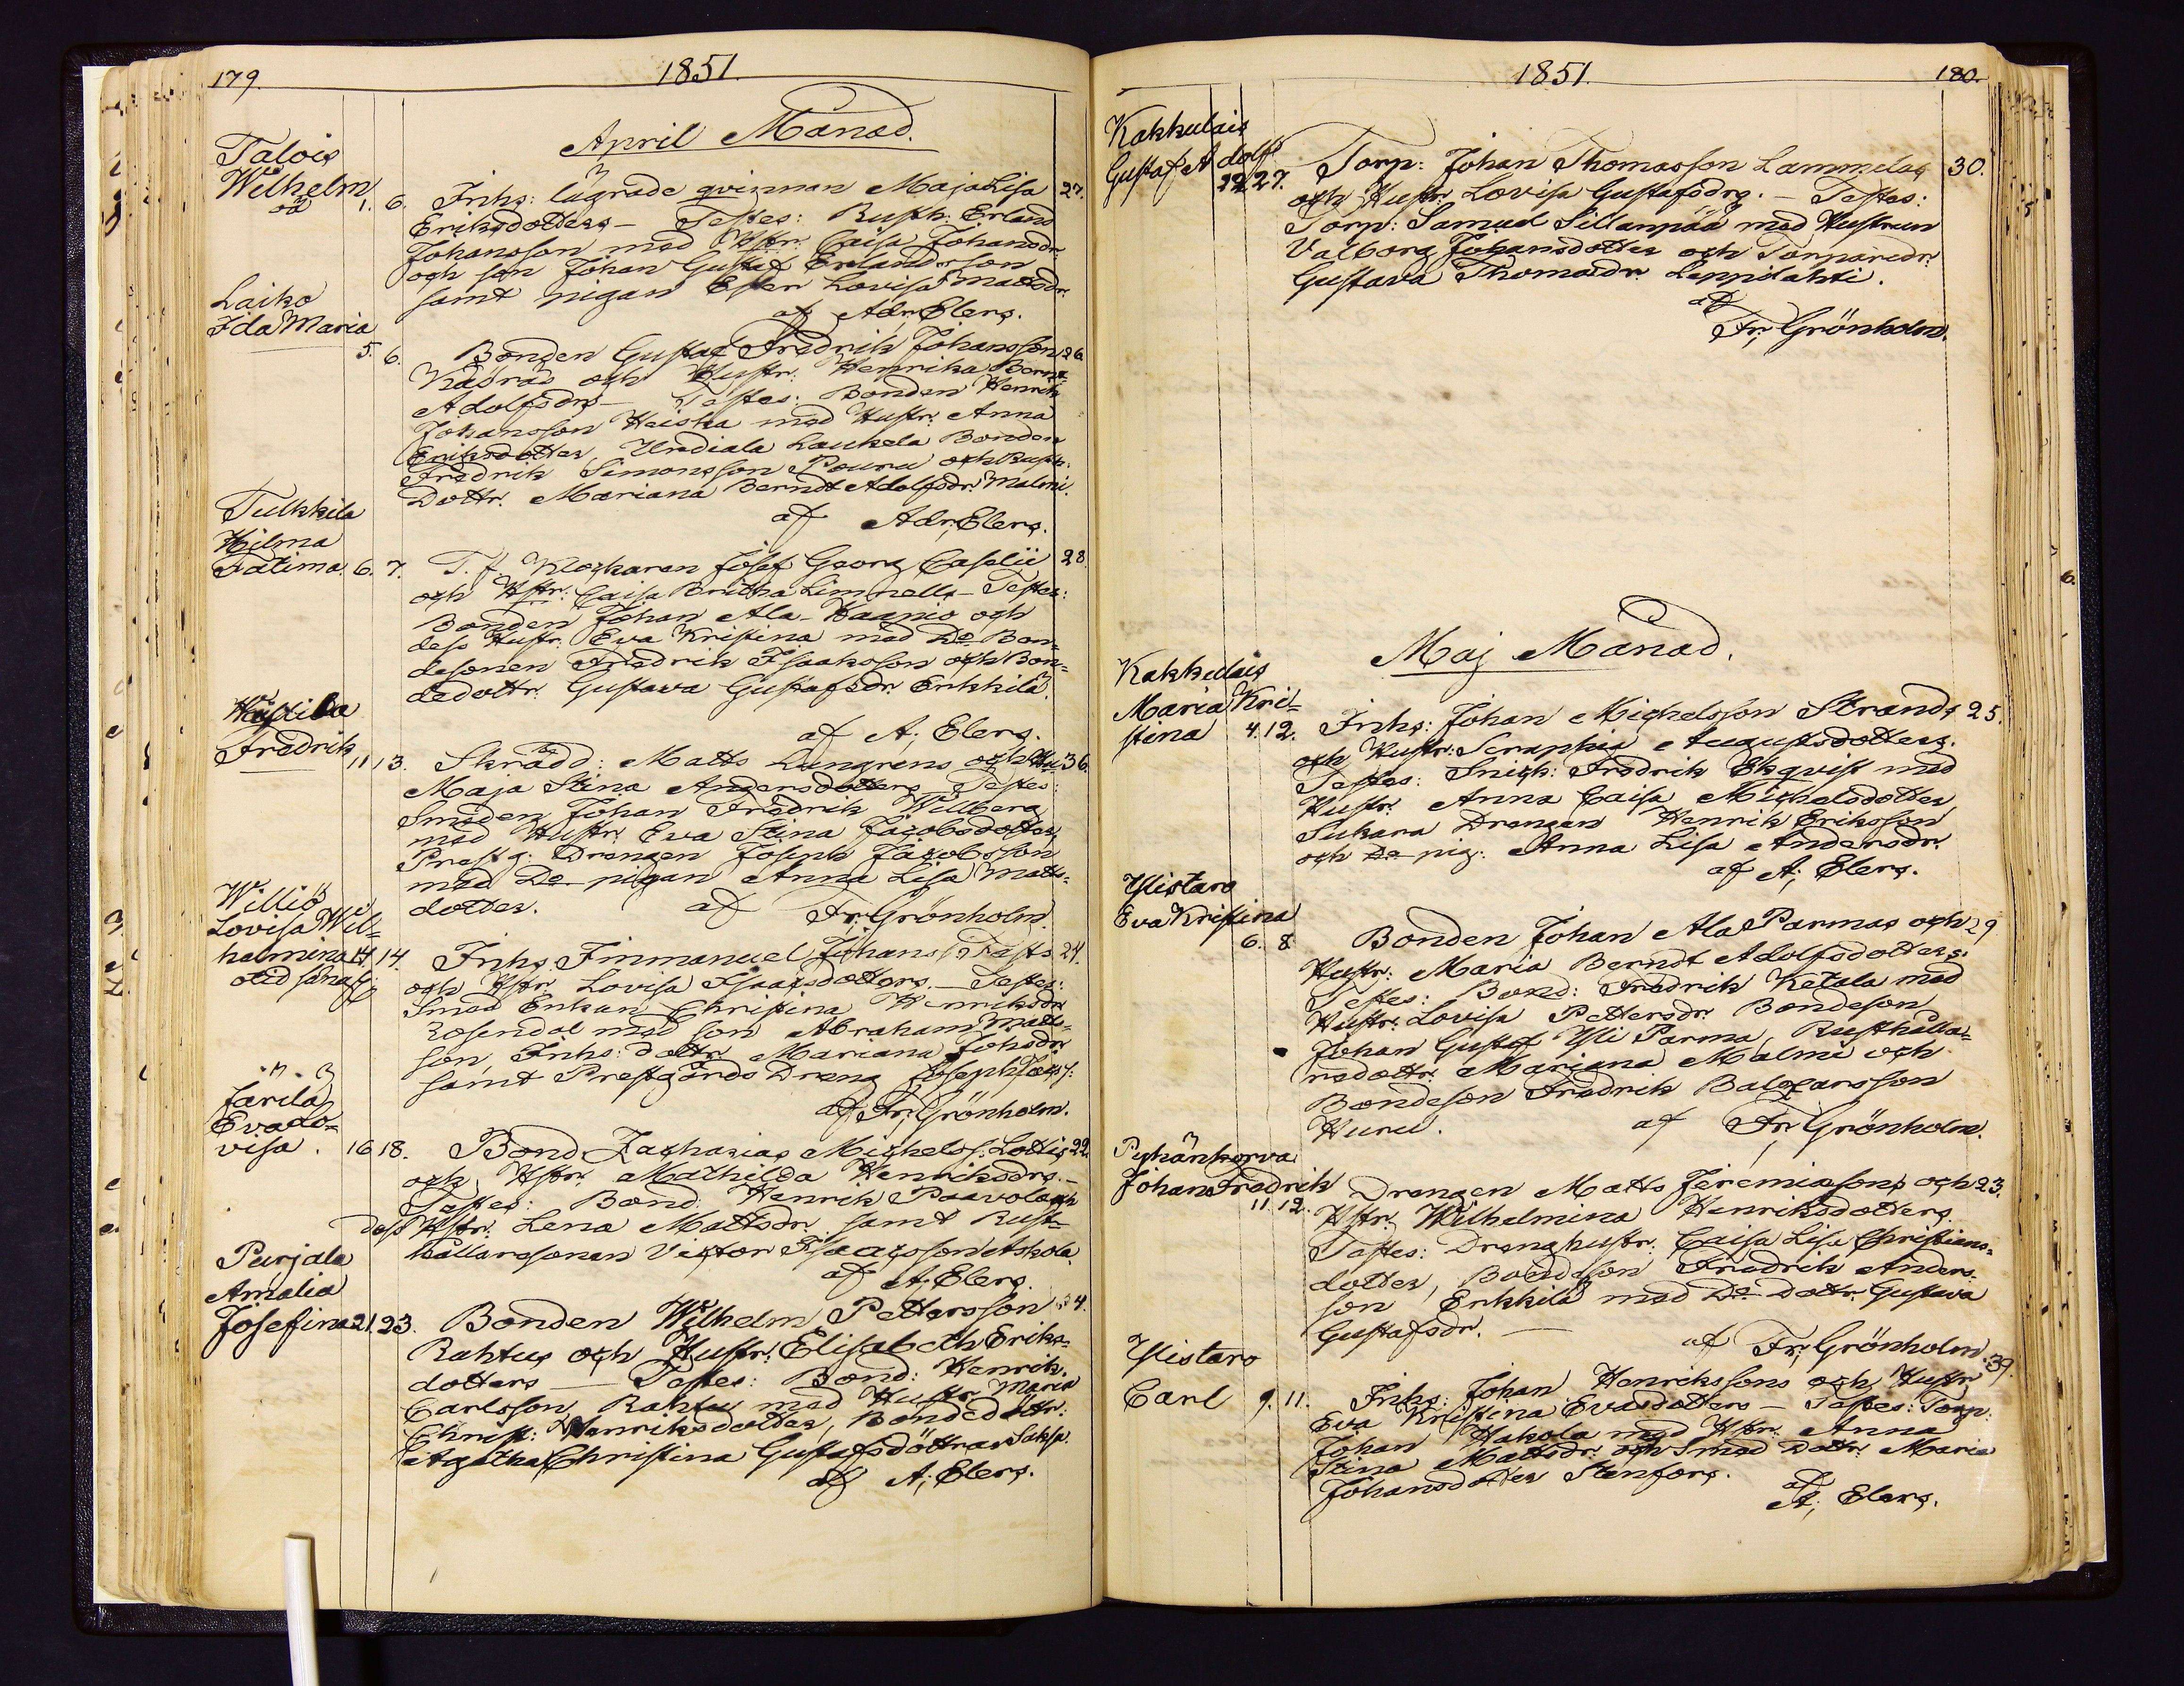 179.
1851.
April Månad.
Talois
Wilhelm
oä 1. 6. Inhs: lägrade qvinnan Maja Lisa 27.
Eriksdotters — Testes: Rusth: Erland
Johansson med Hstr: Caisa Johansdr
och son Johan Gustaf Erlandsson
samt pigan Ester Lovisa Mattsdr.
af Adr. Elers.
Laiko
Ida Maria
5. 6. Bonden Gustaf Fredrik Johansson 26
och Hustr: Henrika Bernt
Adolfsdrs — Testes: Bonden Henrik
Johansson Heiska med Hustr: Anna
Eriksdotter, Urdiala Laukela Bonden
Fredrik Simonsson Pouru och Rusth:
Dottr. Mariana Berndt Adolfsdr. Malmi.
af Adr. Elers.
Tulkkila
Hilma
Fatima. 6. 7. T. f. Klockaren Josef Georg Caselii 28
och Hstr: Caisa Britha Limnells — Testes:
Bonden Johan Ala-Haanio och
dess Hustr. Eva Kristina med Do Bon-
desonen Fredrik Isaaksson och Bon=
dedottr. Gustava Gustafsdr Erkkilä.
af A. Elers.
Fredrik
11 13. Skrädd: Matts Lungrens och Hu 36.
Maja Stina Andersdotters Testes:
Smeden Johan Fredrik Willberg
med Hustr. Eva Stina Jacobsdotter,
Prestg: Drengen Joseph Jacobsson
med Do pigan Anna Lisa Matts=
dotter. af Fr. Grönholm.
Williö
Lovisa Wil=
helmina 14. 14. Inhs Immanuel Johanss Fasts 24.
och Hstr. Lovisa Isaacsdotters. — Testes:
Smed Enkan Christina Henriksdr
Rosendal med son Abraham Matts=
son, Inhs: dottr Mariana Johsdr
samt Prestgårds Dreng Joseph Jacs:
af Fr. Grönholm.
Järilä
Eva Lo=
visa. 16 18. Bond. Zacharias Michels: Lottis 22
och Hstr. Mathilda Henriksdrs. —
Testes: Bond: Henrik Paavola och
dess Hstr. Lena Mattsdr. samt Rust=
hållarssonen Victor Isaacsson Askola.
af A. Elers.
Purjala
Amalia
Josefina 21. 23. Bonden Wilhelm Pettersson 34.
Rahtus och Hustr: Elisabeth Eriks=
dotters — Testes: Bond: Henrik
Carlsson Rahtu med Hustr Maria
Christ: Henriksdotter, Bondedottr:
Agatha Christina Gustafsdottrar Saksp.
af A. Elers.
1851.
180.
Kakkulais
Gustaf Adolf
22 27. Torp: Johan Thomasson Lammelas 30.
och Hustr: Lovisa Gustafsdrs. — Testes:
Torp: Samuel Sillanpää med Hustrun
Valborg Johansdotter och Torparedr.
Gustava Thomasdr. Leppilahti.
af
Fr. Grönholm.
Maj Månad.
Kakkulais
Maria Kri=
stina 4. 12. Inhs: Johan Michelsson Strands 25.
och Hustr: Seraphia Augustsdotters.
Testes: Snick: Fredrik Ekqvist med
Hustr. Anna Caisa Michelsdotter
Sukara Drengen Henrik Eriksson
och Do pig: Anna Lisa Andersdr.
af A. Elers.
Ylistaro
Eva Kristina
6. 8 Bonden Johan Ala Parmas och 29
Hustr: Maria Berndt Adolfsdotters:
Testes: Bond: Fredrik Ketala med
Hustr: Lovisa Pettersdr. Bondeson
Johan Gustaf Yli Parma, Rusthålla=
redottr. Mariana Malmi och
Bondeson Fredrik Baltzarsson
Huru. af Fr. Grönholm.
Pyhänkorva
Johan Fredrik
11 12. Drengen Matts Jeremiassons och 23.
Hstr. Wilhelmina Henriksdotters
Testes: Drenghustr: Caisa Lisa Christians=
dotter, Bondeson Fredrik Anders-
son Erkkilä med Do dottr. Gustava
Gustafsdr. — af Fr. Grönholm.
Ylistaro
Carl 9. 11. Inhs: Johan Henrikssons och Hustr 39.
Eva Kristina Evasdotters — Testes: Torp:
Johan Hakola med Hstr: Anna
Stina Mattsdr. och Smed Dottr. Maria
Johansdotter Stenfors.
af
A. Elers.